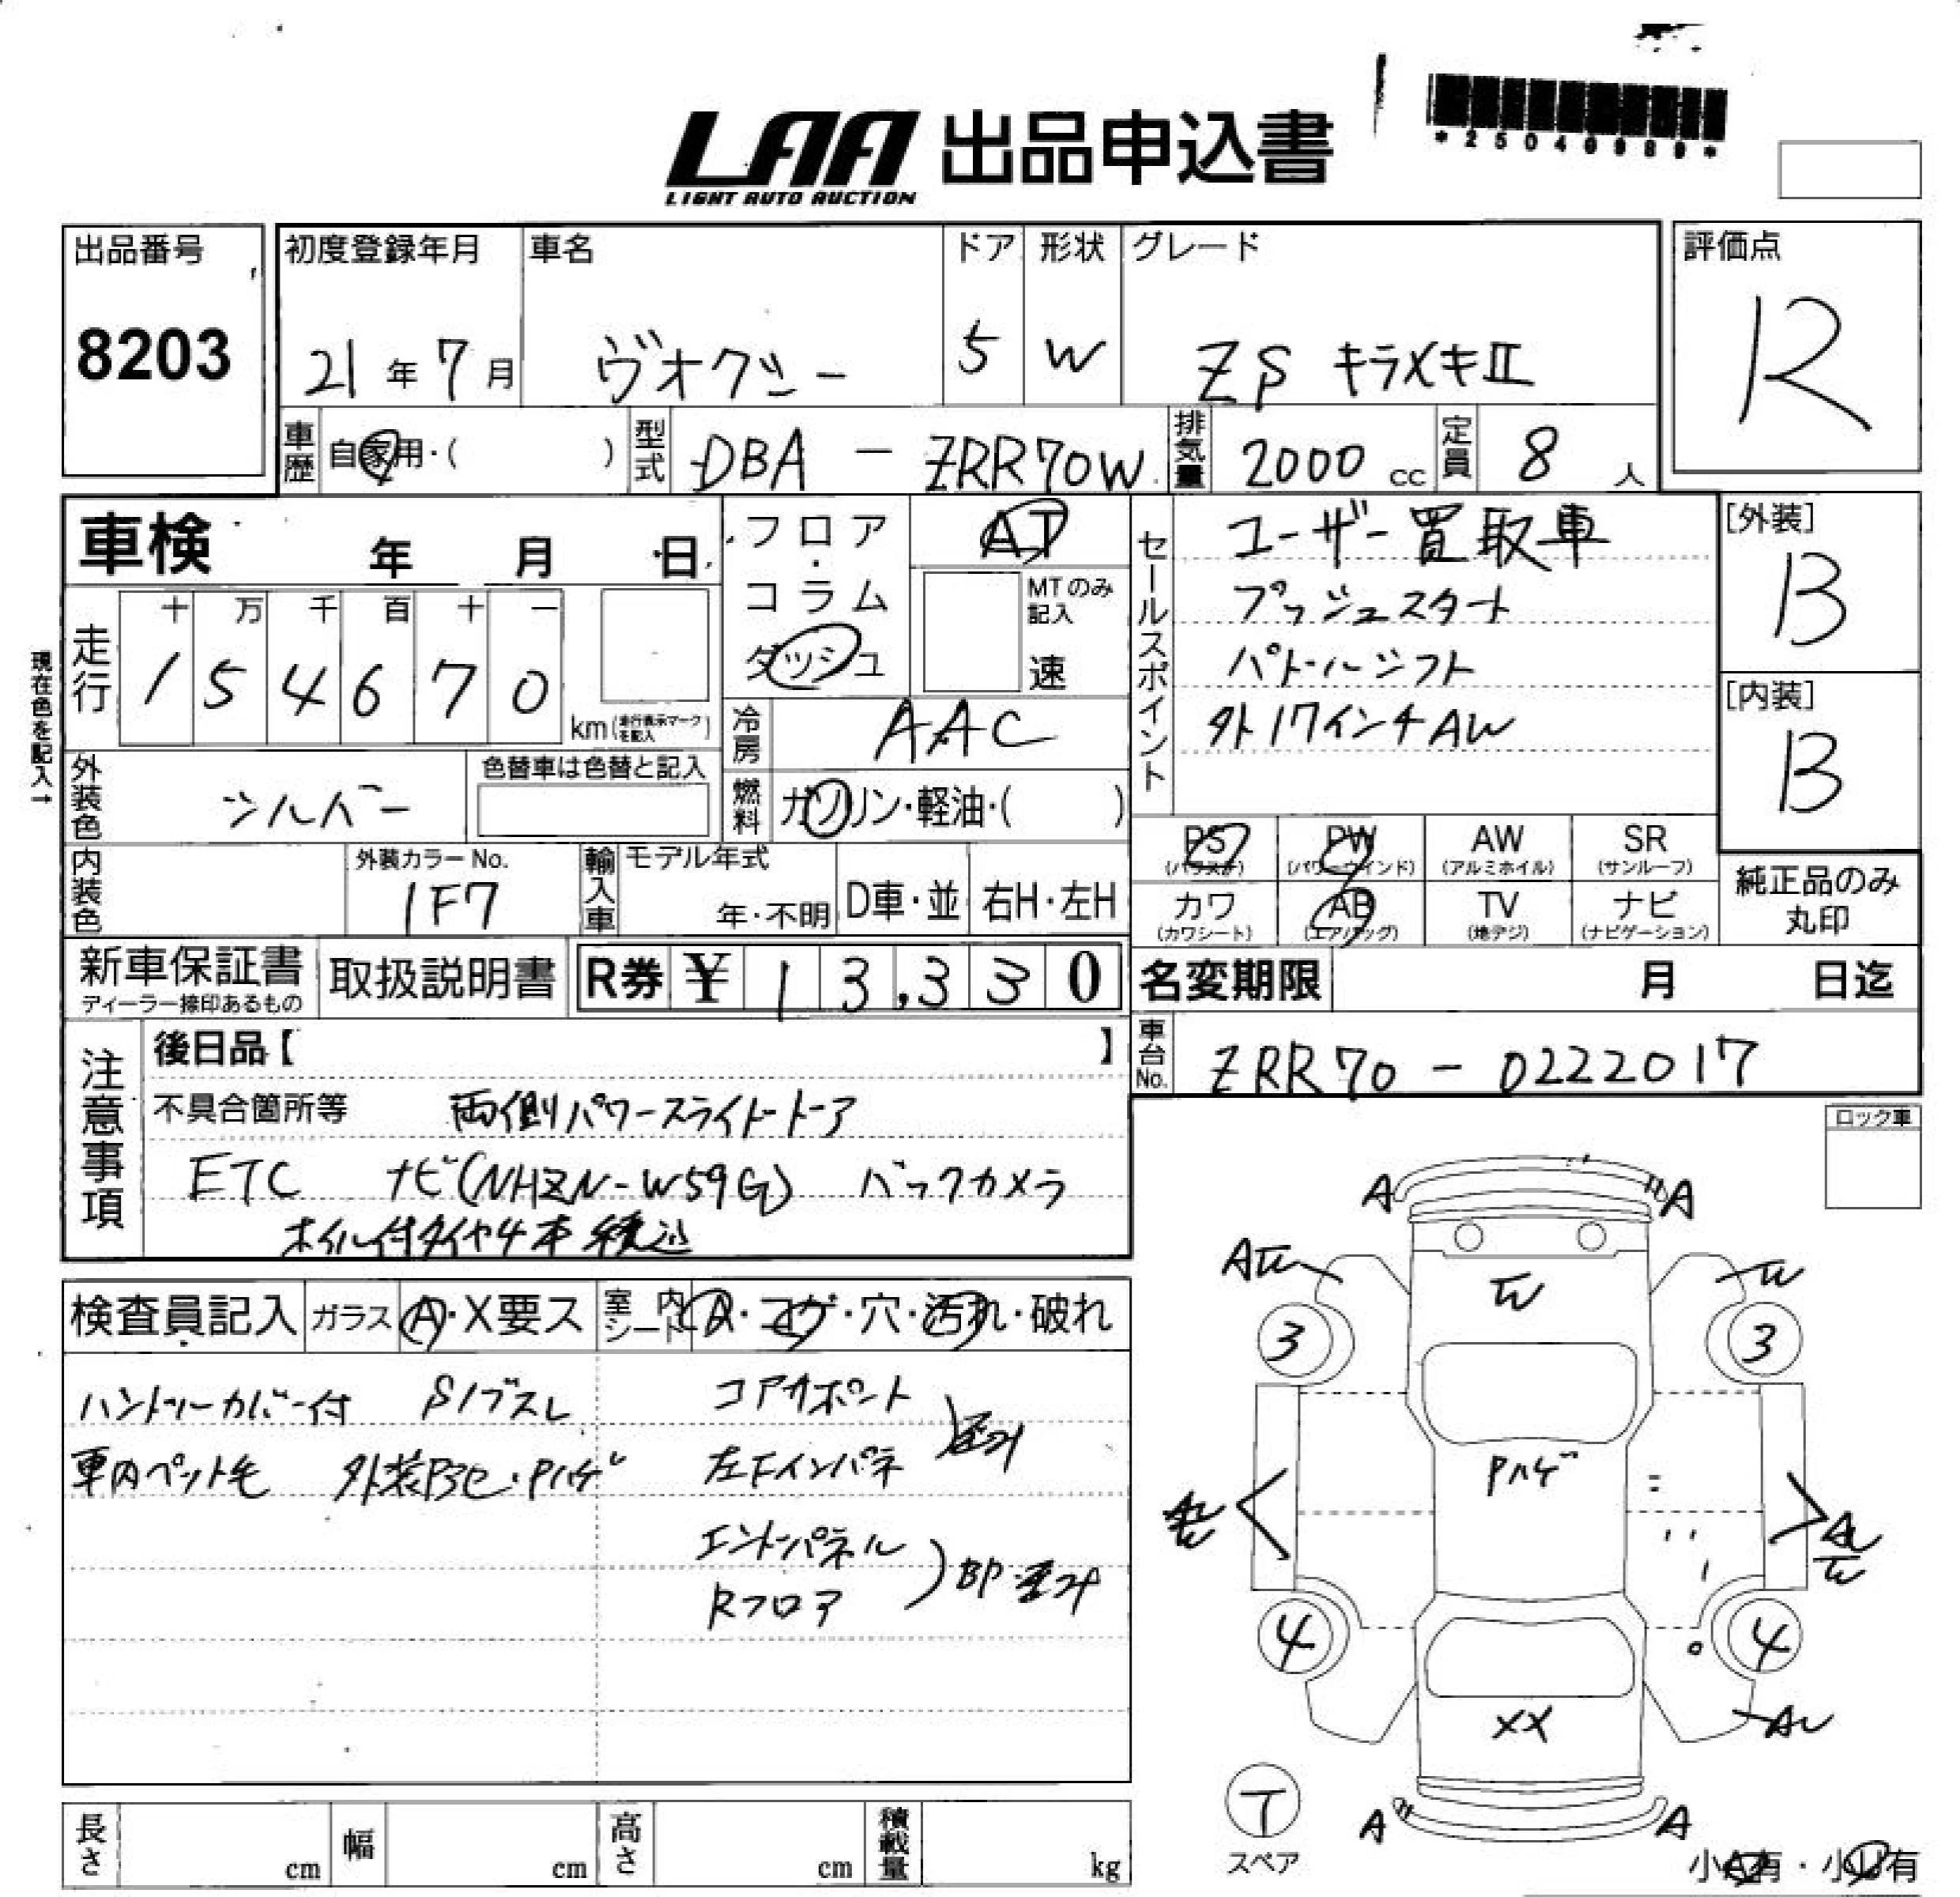 LAA 出品申込書
LIGHT AUTO AUCTION
出品番号
8203
初度登録年月
21年7月
車名
ヴォクシー
ドア
5
形状
W
グレード
ZS キラメキⅡ
評価点
R
車歴 自家用・( )
型式 DBA-ZRR70W
排気量 2000 cc
定員 8 人
車検 年 月 日
フロア・コラム ダッシュ
AT
MTのみ記入
速
セールスポイント
ユーザー買取車
プッシュスタート
パドルシフト
外17インチAW
[外装]
B
[内装]
B
現在色を記入→
走行
十 万 千 百 十 一
1 5 4 6 7 0
km(走行表示マークを記入)
冷房 AAC
外装色 シルバー
色替車は色替と記入
燃料 ガソリン・軽油・( )
PS (パワステ)
PW (パワーウインド)
AW (アルミホイル)
SR (サンルーフ)
カワ (カワシート)
AB (エアバッグ)
TV (地デジ)
ナビ (ナビゲーション)
純正品のみ丸印
内装色
外装カラーNo.
1F7
輸入車
モデル年式
年・不明
D車・並
右H・左H
新車保証書
ディーラー捺印あるもの
取扱説明書
R券 ¥ 13,330
名変期限 月 日迄
車台No. ZRR70-0222017
注意事項
後日品【 】
不具合箇所等 両側パワースライドドア
ETC ナビ(NHZN-W59G) バックカメラ
ホイル付タイヤ4本積込
ロック車
検査員記入
ガラス A・X要ス
室内シート A・コゲ・穴・汚れ・破れ
ハンドルカバー付 Sノブスレ
車内ペット毛 外装B3セ・Pハゲ
コアサポート
左Fインパネ
エンドパネル
Rフロア
A A
AW W
W
3 3
Pハゲ
4 4
XX
T
スペア
A A
小A有・小U有
長さ cm
幅 cm
高さ cm
積載量 kg